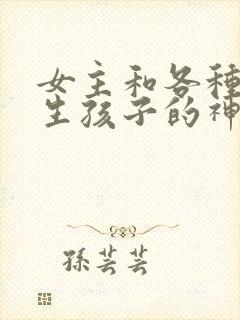 女主和各種
生孩子的神
孫芸芸